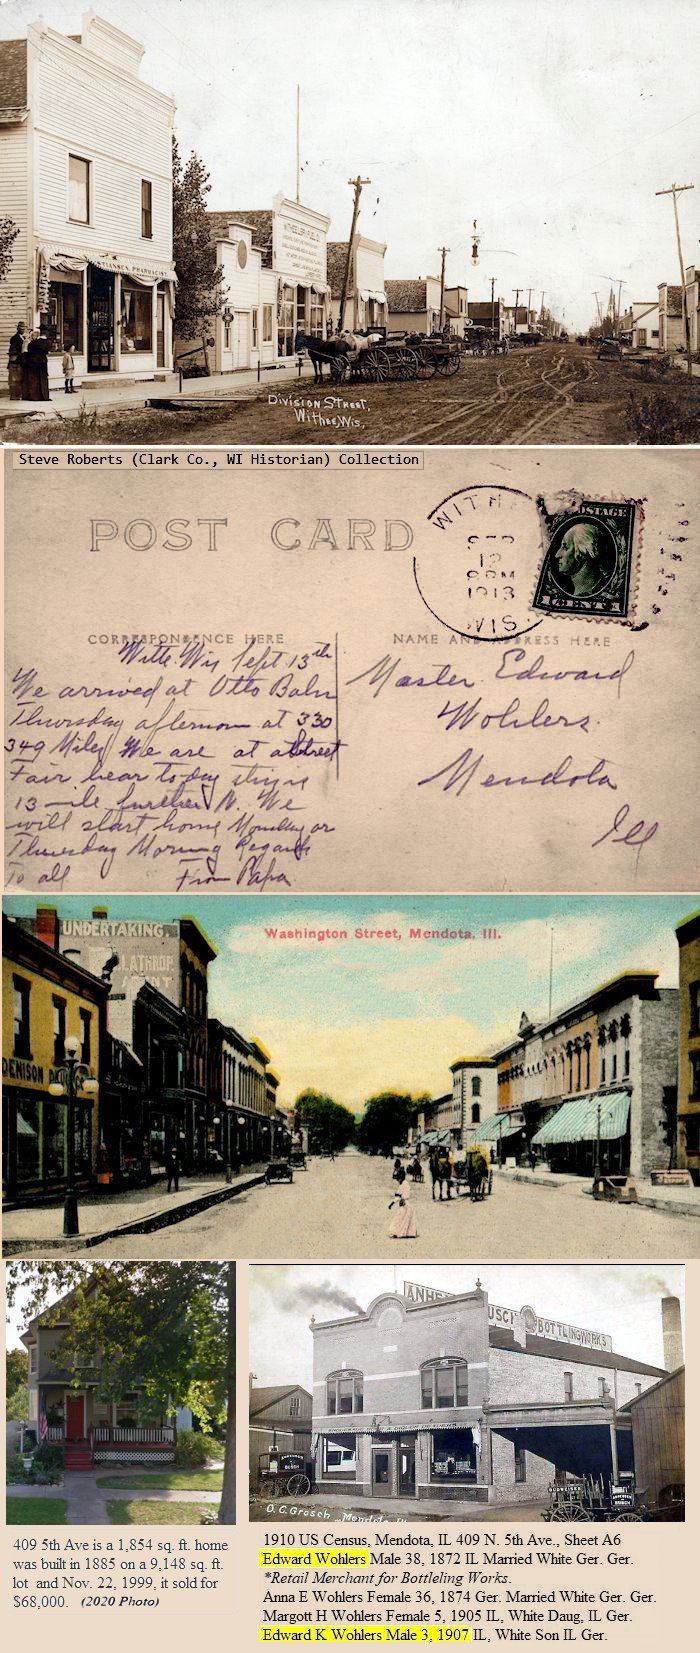 CHRISTIANSEN, PHARMACIST.
Division Street,
Withee, Wis,
Steve Roberts (Clark Co., WI Historian) Collection
POST CARD
WITHEE
SEP
12
8PM
1913
WIS.
POSTAGE
1 CENT 1
CORRESPONDENCE HERE
NAME AND ADDRESS HERE
Withe Wis Sept 13th
We arrived at Otto Bahn
Thursday afternoon at 330
349 Miles We are at a Street
Fair hear to day
13 mile further N. We
will start home Monday or
Thuesday Morning Regards
To all From Papa
Master Edward
Wohlers.
Mendota
Ill
UNDERTAKING.
LATHROP
Washington Street, Mendota, Ill.
DENISON DRUGS
ANHE USCH BOTTLINGWORKS
ANHEUSER
BUSCH
BUDWEISER
ANHEUSER
BUSCH
O.C. Grosch Mendota Ill
409 5th Ave is a 1,854 sq. ft. home
was built in 1885 on a 9,148 sq. ft.
lot and Nov. 22, 1999, it sold for
$68,000. (2020 Photo)
1910 US Census, Mendota, IL 409 N. 5th Ave., Sheet A6
Edward Wohlers Male 38, 1872 IL Married White Ger. Ger.
*Retail Merchant for Bottleling Works.
Anna E Wohlers Female 36, 1874 Ger. Married White Ger. Ger.
Margott H Wohlers Female 5, 1905 IL, White Daug, IL Ger.
Edward K Wohlers Male 3, 1907 IL, White Son IL Ger.